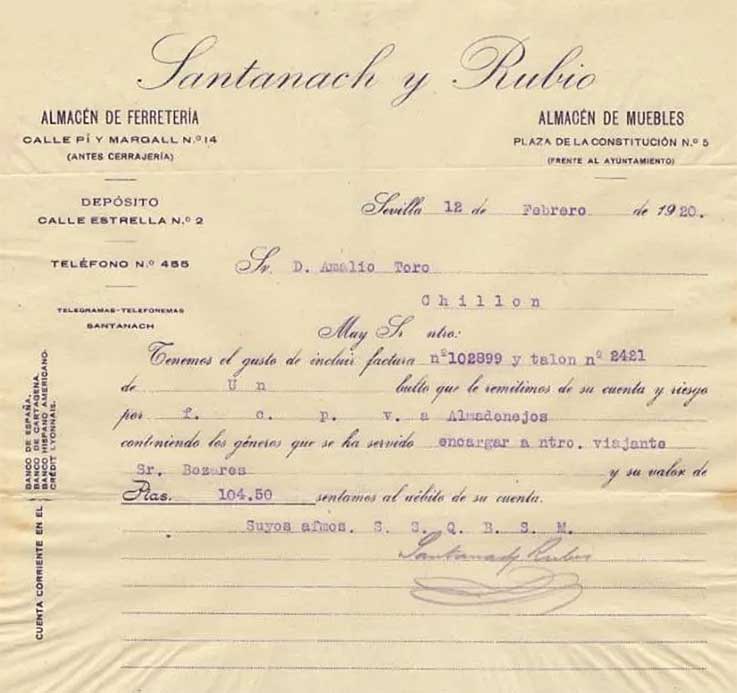 Santanach y Rubio
ALMACÉN DE FERRETERÍA
CALLE PÍ Y MARGALL N.º 14
(ANTES CERRAJERÍA)
ALMACÉN DE MUEBLES
PLAZA DE LA CONSTITUCIÓN N.º 5
(FRENTE AL AYUNTAMIENTO)
DEPÓSITO
CALLE ESTRELLA N.º 2
TELÉFONO N.º 455
TELEGRAMAS-TELEFONEMAS
SANTANACH
Sevilla 12 de Febrero de 1920.
Sr. D. Amalio Toro
Chillon
Muy Sr ntro:
Tenemos el gusto de incluir factura nº102899 y talon nº 2421
de Un bulto que le remitimos de su cuenta y riesgo
por f. c. p. v. a Almadenejos
conteniendo los géneros que se ha servido encargar a ntro. viajante
Sr. Bozares y su valor de
Ptas. 104.50 sentamos al débito de su cuenta.
Suyos afmos. S. S. Q. B. S. M.
Santanach y Rubio
CUENTA CORRIENTE EN EL
BANCO DE ESPAÑA.
BANCO DE CARTAGENA.
BANCO HISPANO AMERICANO.
CRÉDIT LYONNAIS.